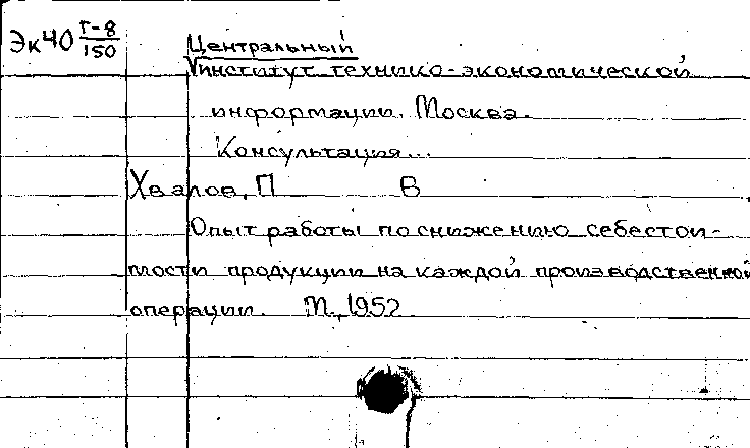 Эк40 Т-8/150
Центральный
институт технико-экономической
информации. Москва.
Консультация...
Хвалов, П В
Опыт работы по снижению себестои-
мости продукции на каждой производственной
операции. М., 1952